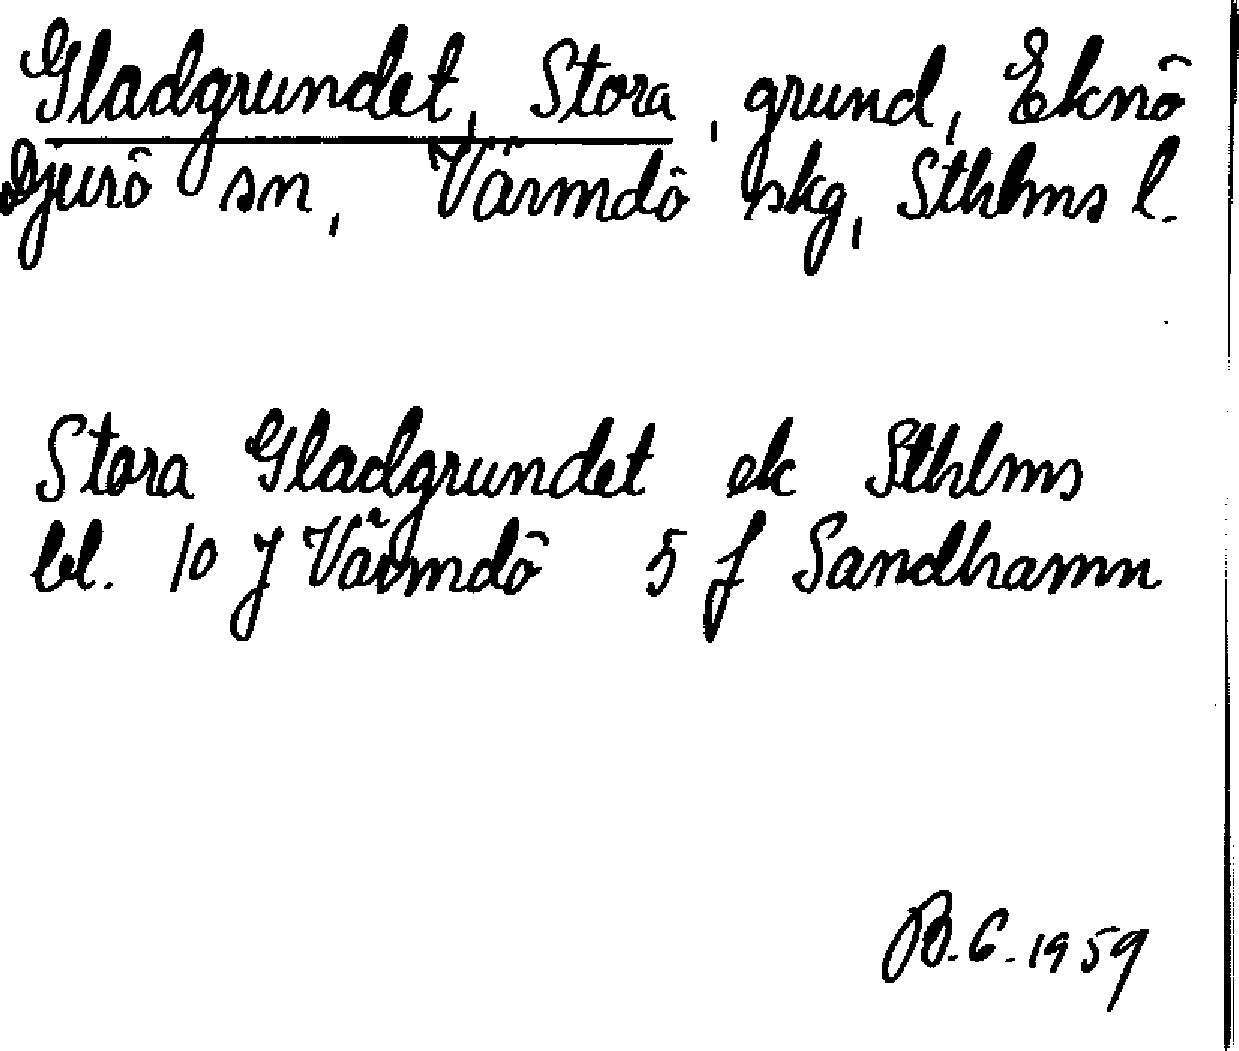 Gladgrundet, Stora, grund, Eknö
Djurö sn, Värmdö skg, Sthlms l.
Stora Gladgrundet ek Sthlms
bl. 10 J Värmdö 5 f Sandhamn
B.C. 1959